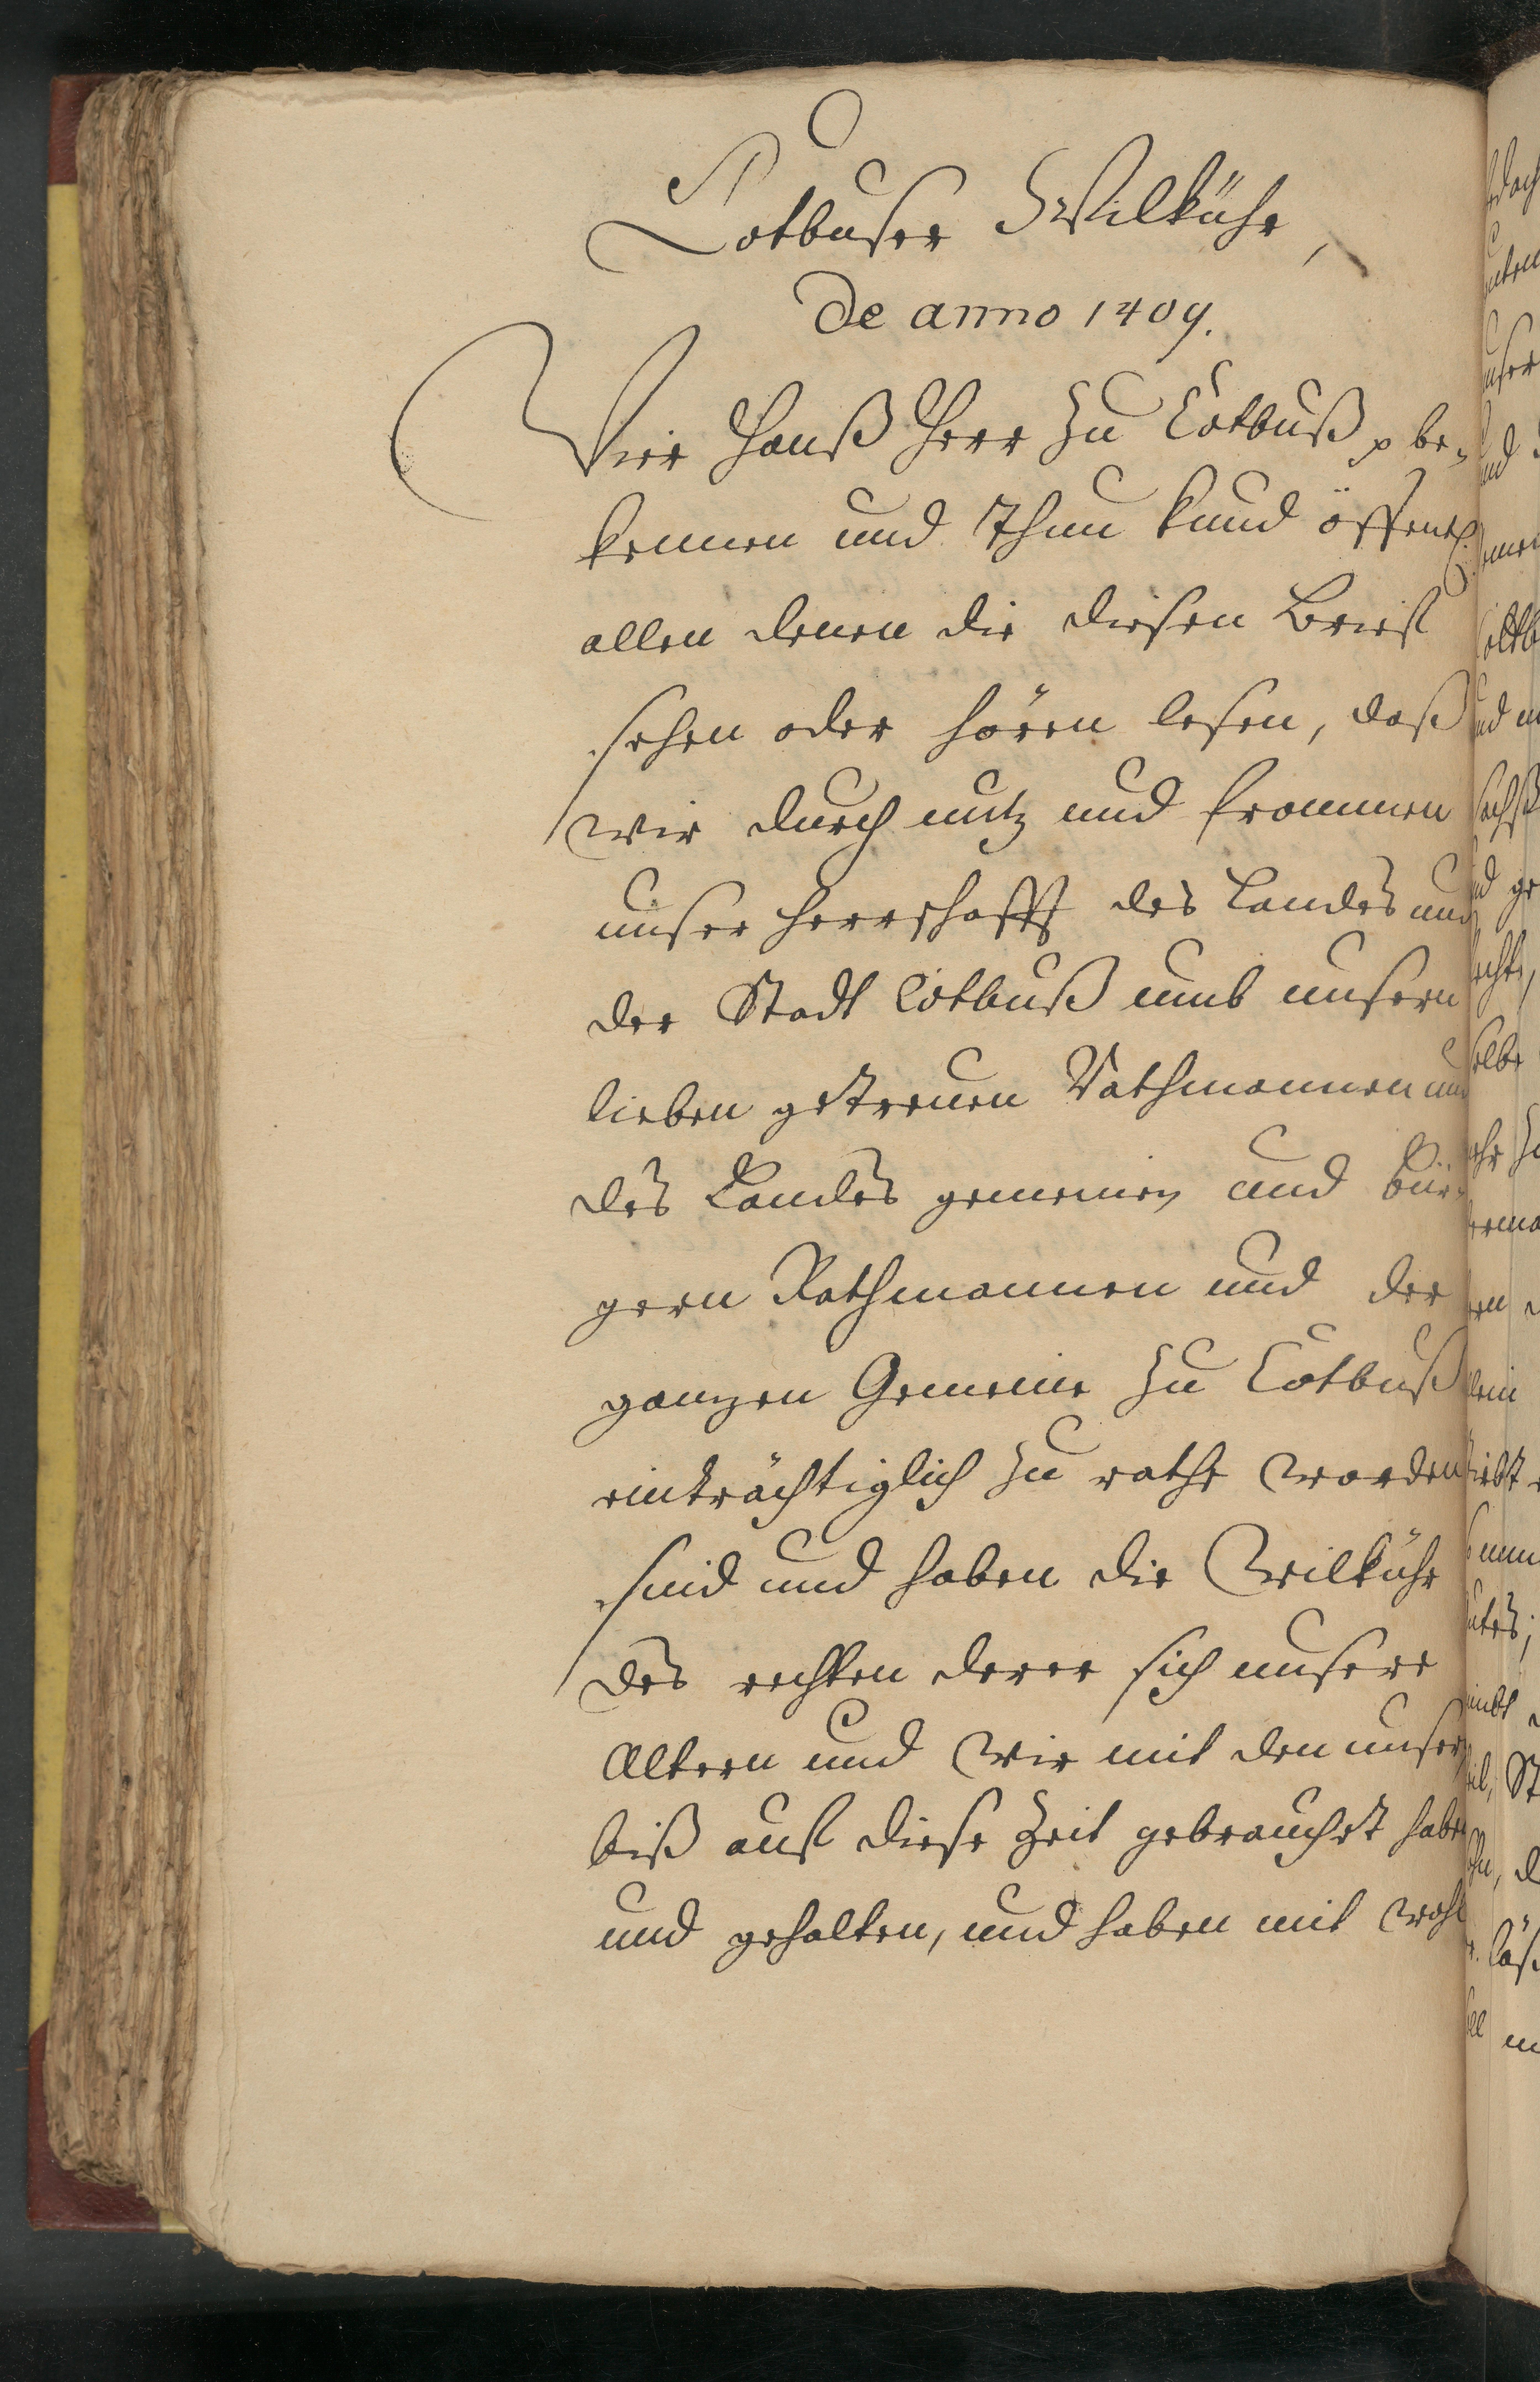 Cotbuser Wilkühr,
De anno 1409.
Wir Hanß Herr zu Cotbuß p be-
kennen und Thun kund öffentl.
allen denen die diesen Brieff
sehen oder hören lesen, daß
wir durch nutz und frommen
unser herrschafft des Landes und
der Stadt Cotbuß umb unsern
lieben getreuen Rathmannen und
des Landes gemeinen und bür-
gern Rathmannen und der
ganzen Gemeine zu Cotbuß
einträchtiglich zu rathe worden
sind und haben die Wilkühr
des rechten derer sich unsere
Altern und wir mit den unsern
biß auff diese Zeit gebrauchet haben
und gehalten, und haben mit wohl